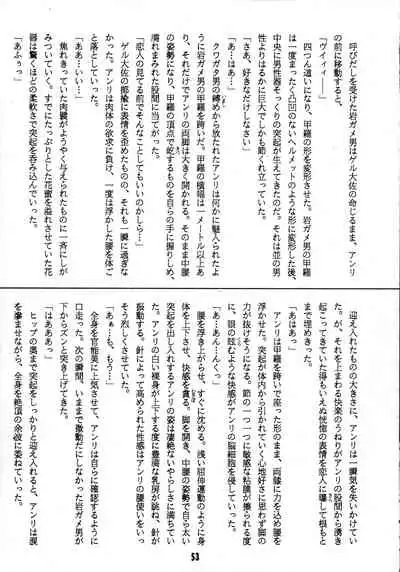 呼びだしを受けた岩ガメ男はゲル大佐の命じるまま、アンリ
の前に移動すると、
「ヴイィィ——」
四つん這いになり、甲羅の形を変形させた。岩ガメ男の甲羅
は一度まったく凸凹のないヘルメットのような形に変形した後、
中央に男性器そっくりの突起が生えてきたのだ。それは並の男
性よりはるかに巨大でしかも節くれ立っていた。
「さあ、好きなだけしなさい」
「あ…はぁ…」
クワガタ男の縛めから放たれたアンリは何かに魅入られたよ
うに岩ガメ男の甲羅を跨いだ。甲羅の横幅は一メートル以上あ
り、それだけでアンリの両脚は大きく開かれる。そのまま中腰
の姿勢になり、甲羅の頂点で屹立するものを自らの手に握りしめ、
濡れまみれた股間に当てがった。
「恋人の見てる前でそんなことしてもいいのかしら…」
ゲル大佐の揶揄に表情を歪めたものの、それも一瞬に過ぎな
かった。アンリは肉体の欲求に負け、一度は浮かした腰を
と落としていった。
「ああ…いい…」
焦れきっていた肉襞がようやく与えられたものに一斉にしが
みついていく。すでにたっぷりとした花蜜を溢れさせていた花
唇は驚くほどの柔軟さで突起を呑み込んでいった。
「あふぅっ」
迎え入れたものの大きさに、アンリは一瞬気を失いかけてい
た。が、それを上まわる快楽のうねりがアンリの股間から湧き
起こってきていた得もいえぬ恍惚の表情を恋人に曝して根もと
まで埋めきった。
「あはあっ」
アンリは甲羅を跨いで座った形のまま、両膝に力を込め腰を
浮かせた。突起が体内から引かれていく心地好さに思わず脚の
力が抜けそうになる。節の一つ一つに敏感な粘膜が擦られる度
に、眼の眩むような快感がアンリの脳細胞を侵していった。
「さ…あん…んくっ」
腰を浮き上がらせ、すぐに沈める。浅い屈伸運動のように身
体を上下させ、快感を貪る。脚を開き、中腰の姿勢で自ら太い
突起を出し入れするアンリの姿は凄絶ないやらしさに満ちてい
た。アンリの白い裸身が上下する度に豊満な乳房が跳ね、針が
振動する。針によって高められた性感はアンリの腰使いをいっ
そう烈しくさせていた。
「あぁ…も、もう…」
全身を官能美に上気させて、アンリは自らに確認するように
口走った。次の瞬間、いままで微動だにしなかった岩ガメ男が
下からズンと突き上げてきた。
「はあああっ」
ヒップの奥まで突起をしっかりと迎え入れると、アンリは涙
を滲ませながら、全身を絶頂の余波に委ねていった。
53